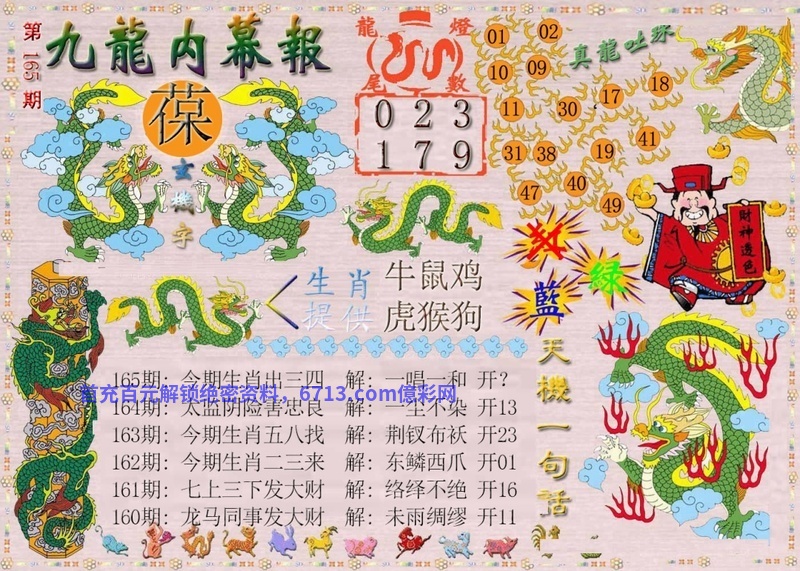 第165期
九龍内幕報
葆
玄機字
龍燈
尾數
0 2 3
1 7 9
01 02
10 09
11 30 17 18
31 38 19 41
47 40 49
真龍吐珠
财神透色
綠
藍
生肖 牛鼠鸡
提供 虎猴狗
165期: 今期生肖出三四 解: 一唱一和 开?
首充百元解锁绝密资料，6713.com億彩网
164期: 太监阴险害忠良 解: 一尘不染 开13
163期: 今期生肖五八找 解: 荆钗布袄 开23
162期: 今期生肖二三来 解: 东鳞西爪 开01
161期: 七上三下发大财 解: 络绎不绝 开16
160期: 龙马同事发大财 解: 未雨绸缪 开11
天機一句話